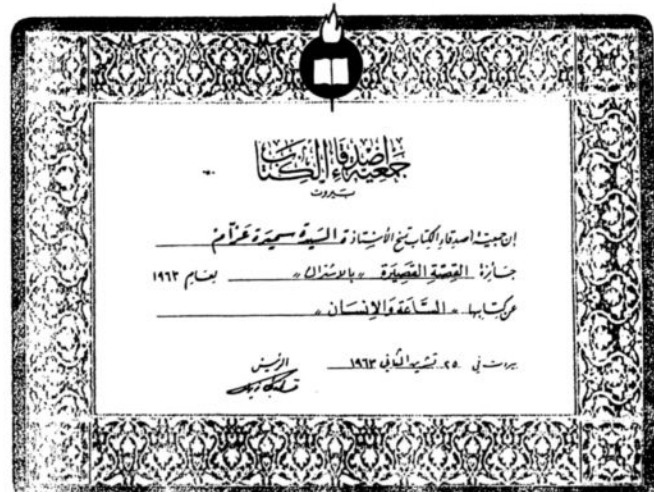 جمعية أصدقاء الكتاب
بيروت
إن جمعية أصدقاء الكتاب تمنح الأستاذة السيدة سميرة عزام
جائزة القصة القصيرة "بالاشتراك" لعام ١٩٦٣
عن كتابها "الساعة والإنسان"
بيروت في ٢٥ تشرين الثاني ١٩٦٣
الرئيس